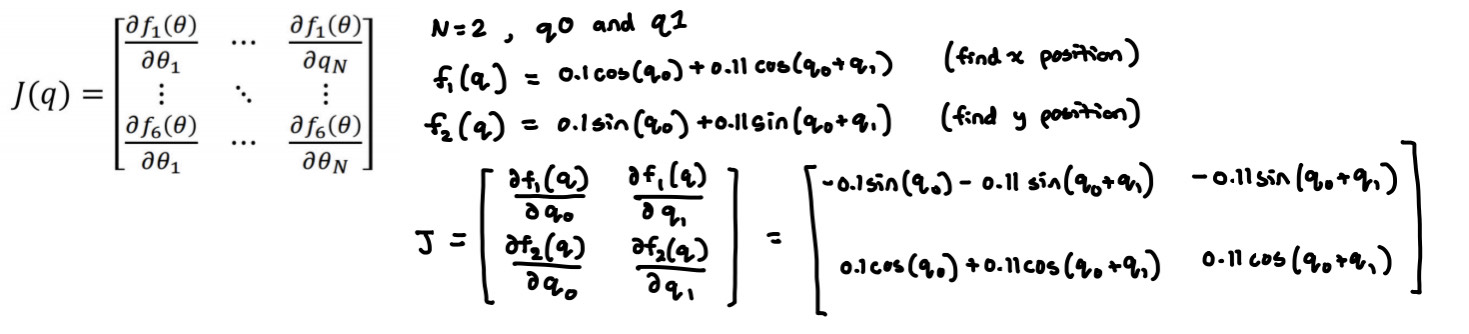 J(q) = [ ∂f₁(θ)/∂θ₁ ⋯ ∂f₁(θ)/∂q_N ; ⋮ ⋱ ⋮ ; ∂f₆(θ)/∂θ₁ ⋯ ∂f₆(θ)/∂θ_N ]
N=2 , q0 and q1
f₁(q) = 0.1cos(q₀)+0.11 cos(q₀+q₁) (find x position)
f₂(q) = 0.1sin(q₀)+0.11sin(q₀+q₁) (find y position)
J = [ ∂f₁(q)/∂q₀ ∂f₁(q)/∂q₁ ; ∂f₂(q)/∂q₀ ∂f₂(q)/∂q₁ ] = [ -0.1sin(q₀)-0.11 sin(q₀+q₁) -0.11sin(q₀+q₁) ; 0.1cos(q₀)+0.11cos(q₀+q₁) 0.11cos(q₀+q₁) ]